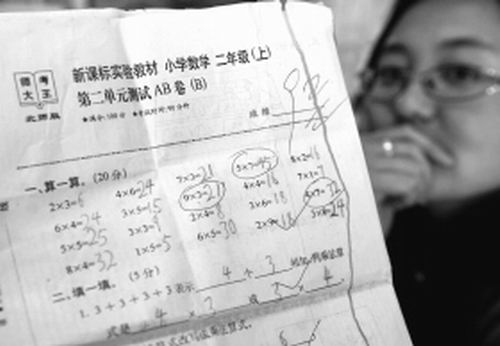 德考
大王
北师版
新课标实验教材 小学数学 二年级(上)
第二单元测试 AB 卷 (B)
★满分:100分
成绩
一、算一算。(20分)
2×3=6 4×6=24 7×3=21 5×9=45 8×2=16
6×4=24 3×5=15 9×3=21 4×4=16 7×1=7
5×5=25 3×3=9 2×4=8 3×6=18
8×4=32 1×5=5 6×5=30 2×9=18 3×8=24
二、填一填。(5分)
1. 3+3+3+3表示 4 个 3 相加,用乘法算
式是 4 × 3 或 3 × 4